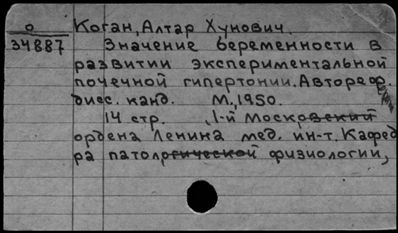 О Коган, Алтар Хунович.
34887 Значение беременности в
развитии экспериментальной
почечной гипертонии. Автореф.
дисс. канд. М., 1950.
14 стр. 1-й Московский
ордена Ленина мед. ин-т. Кафед
ра патологической физиологии,